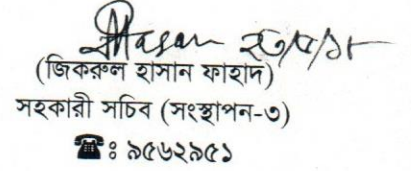 ২৩/৫/১৮
(জিকরুল হাসান ফাহাদ)
সহকারী সচিব (সংস্থাপন-৩)
☎ঃ ৯৫৬২৯৫১